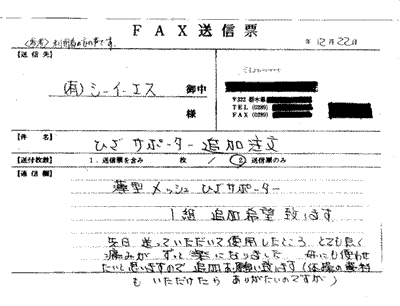 FAX送信票
(参考)利用者の方の声です。
年 12月 22日
【送信先】
(有)シーイーエス 御中
様
〒322 栃木県
TEL (0289)
FAX (0289)
【件名】
ひざサポーター 追加注文
【送付枚数】 1.送信票を含み 枚 / ②送信票のみ
【通信欄】
薄型メッシュひざサポーター
1組 追加希望致します
先日送っていただいて使用したところ、とても良く
痛みがずっと楽になりました 母にも使わせ
たいと思いますので追加お願い致します(体操の資料
もいただけたら ありがたいのですが)